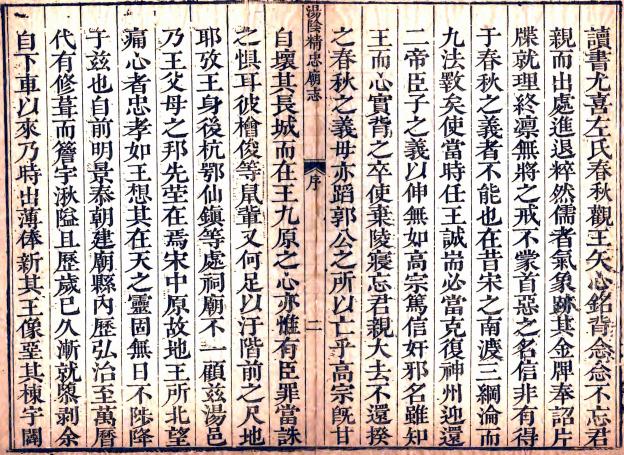 讀書尤喜左氏春秋觀王矢心銘背念念不忘君
親而出處進退粹然儒者氣象跡其金牌奉詔片
牒就理終凛無將之戒不蒙首惡之名信非有得
于春秋之義者不能也在昔宋之南渡三綱淪而
九法斁矣使當時任王誠耑必當克復神州迎還
二帝臣子之義以伸無如高宗篤信奸邪名雖知
王而心實背之卒使棄陵寢忘君親大去不還揆
之春秋之義毋亦蹈郭公之所以亡乎高宗旣甘
湯陰精忠廟志 序 二
自壞其長城而在王九原之心亦惟有臣罪當誅
之惧耳彼檜俊等鼠輩又何足以汙階前之尺地
耶攷王身後杭鄂仙鎮等處祠廟不一顧兹湯邑
乃王父母之邦先塋在焉宋中原故地王所北望
痛心者忠孝如王想其在天之靈固無日不陟降
于兹也自前明景泰朝建廟縣内歷弘治至萬曆
代有修葺而簷宇湫隘且歷歲已久漸就隳剥余
自下車以來乃時出薄俸新其王像堊其棟宇闢